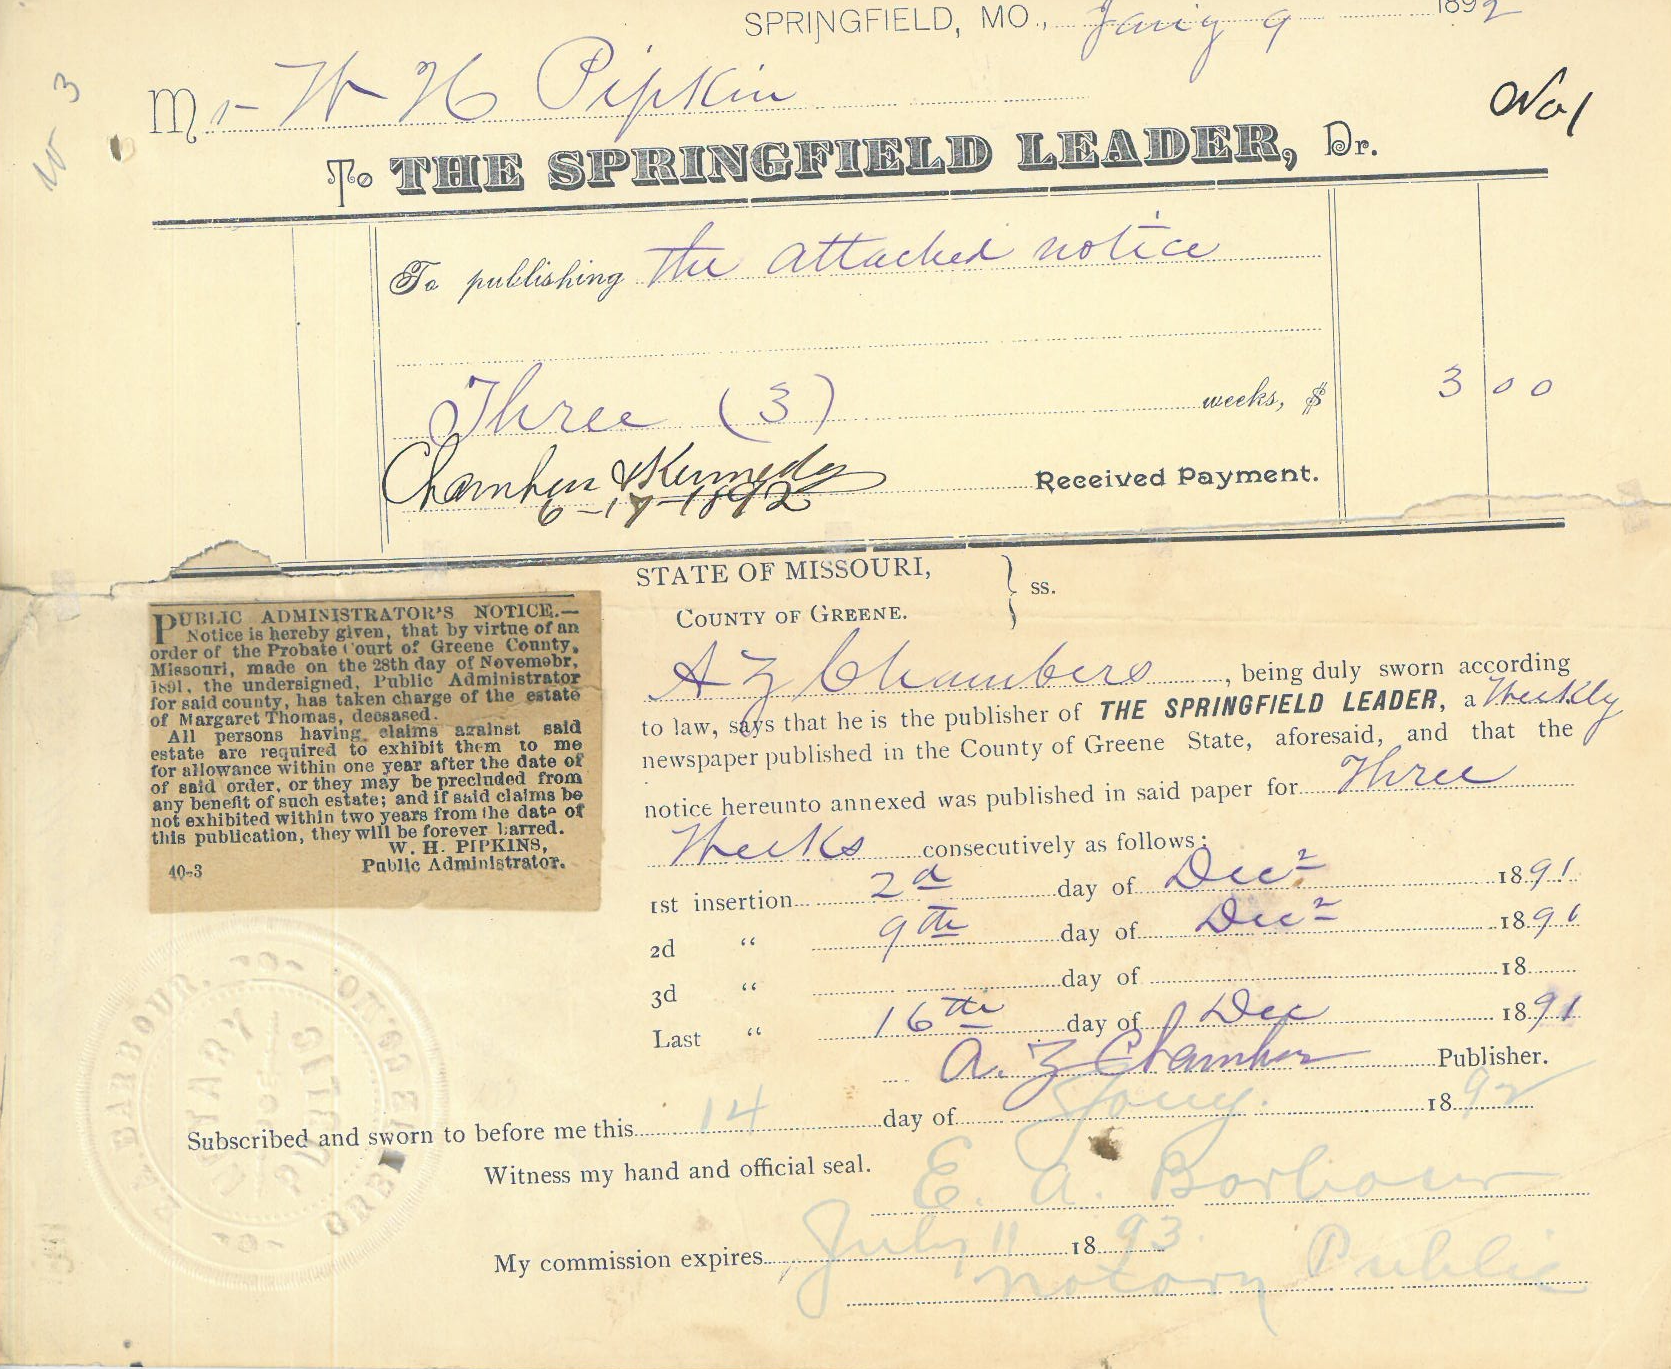 SPRINGFIELD, MO., Jan'y 9 1892
Mr W H Pipkin
No 1
To THE SPRINGFIELD LEADER, Dr.
To publishing the attached notice
Three (3) weeks, $ 3 00
Chambers & Kennedy Received Payment.
6-17-1892
STATE OF MISSOURI,
COUNTY OF GREENE. } ss.
PUBLIC ADMINISTRATOR'S NOTICE.—
Notice is hereby given, that by virtue of an
order of the Probate Court of Greene County,
Missouri, made on the 28th day of Novemebr,
1891, the undersigned, Public Administrator
for said county, has taken charge of the estate
of Margaret Thomas, deceased.
All persons having claims against said
estate are required to exhibit them to me
for allowance within one year after the date of
of said order, or they may be precluded from
any benefit of such estate; and if said claims be
not exhibited within two years from the date of
this publication, they will be forever barred.
W. H. PIPKINS,
40-3 Public Administrator.
A Z Chambers, being duly sworn according
to law, says that he is the publisher of THE SPRINGFIELD LEADER, a Weekly
newspaper published in the County of Greene State, aforesaid, and that the
notice hereunto annexed was published in said paper for Three
Weeks consecutively as follows:
1st insertion 2d day of Dec 1891
2d " 9th day of Dec 1891
3d " day of 18
Last " 16th day of Dec 1891
A. Z Chambers Publisher.
Subscribed and sworn to before me this 14 day of Jany. 1892
Witness my hand and official seal.
E. A. Barbour
My commission expires July 11 1893.
Notary Public
E. A. BARBOUR.
NOTARY PUBLIC